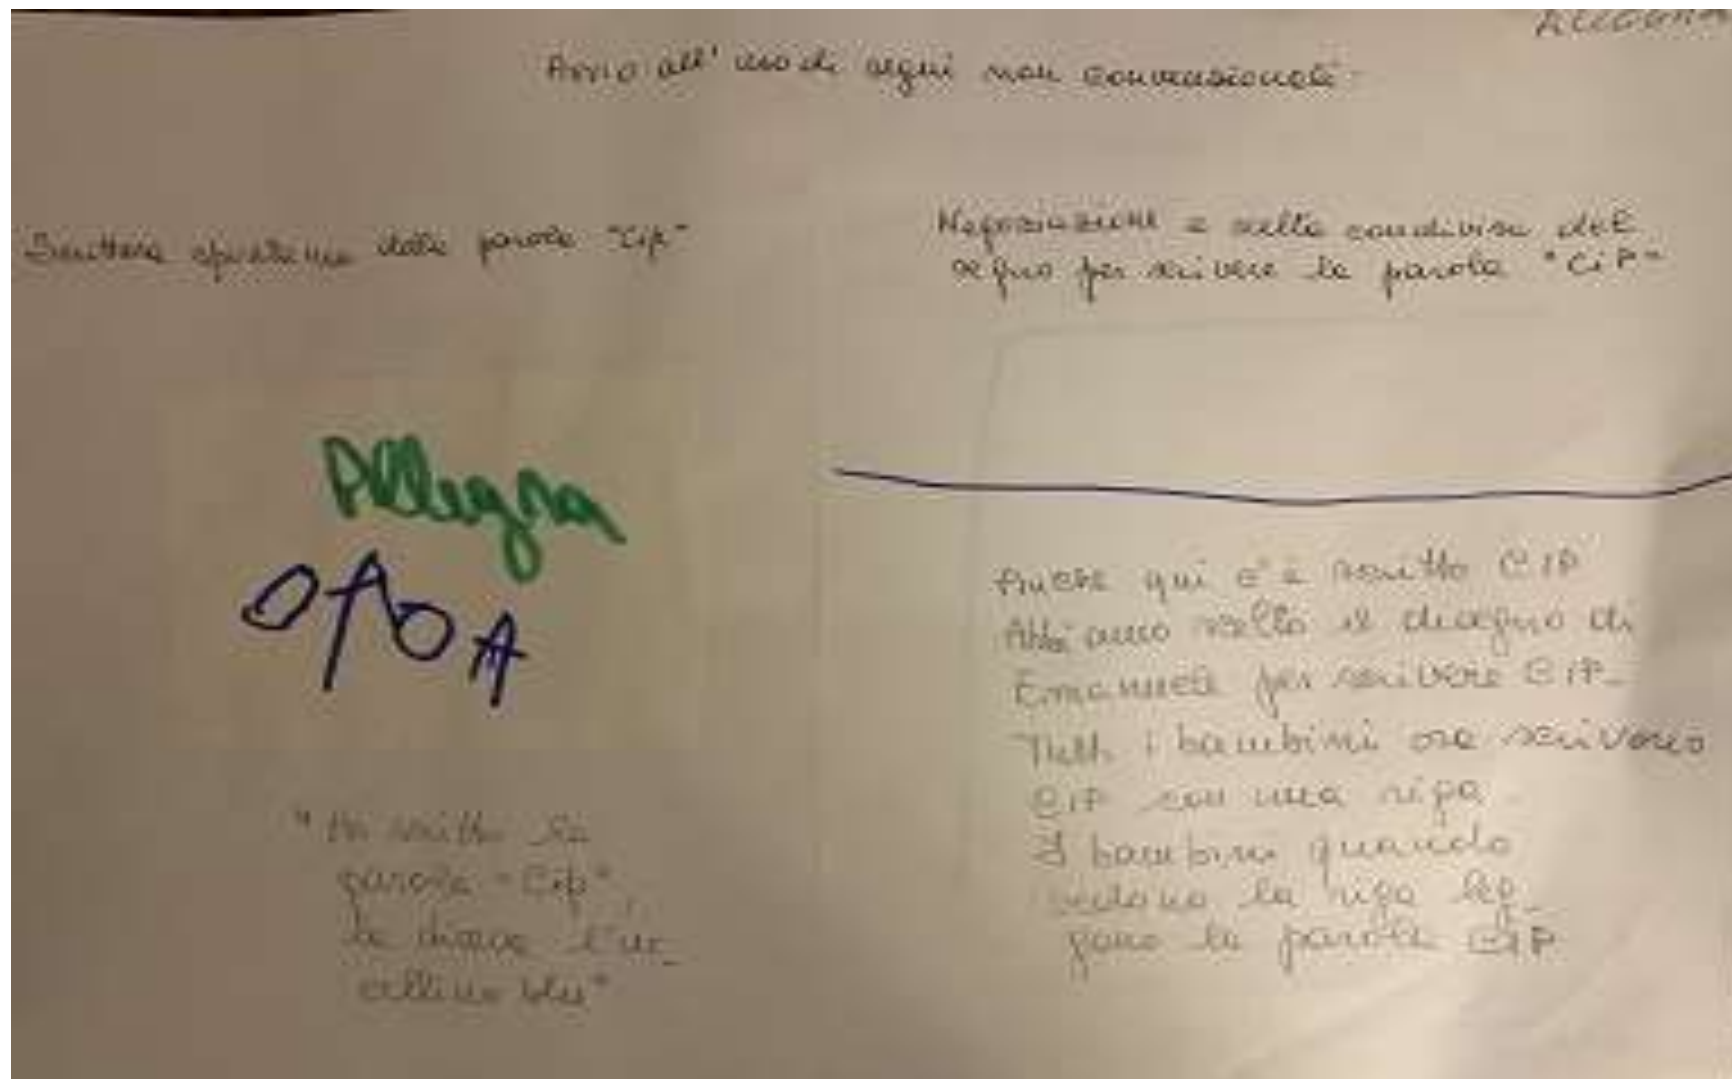 ALLEGRA
Avvio all'uso di segni non convenzionali
Scrittura spontanea della parola "Cip"
Allegra
OΛOA
"Ho scritto la
parola "Cip",
la diceva l'uc
cellino blu"
Negoziazione e scelta condivisa del
segno per scrivere la parola "CiP"
Anche qui c'è scritto CIP
Abbiamo scelto il disegno di
Emanuele per scrivere CIP-
Tutti i bambini ora scrivono
CIP con una riga.
I bambini quando
vedono la riga leg-
gono la parola CIP